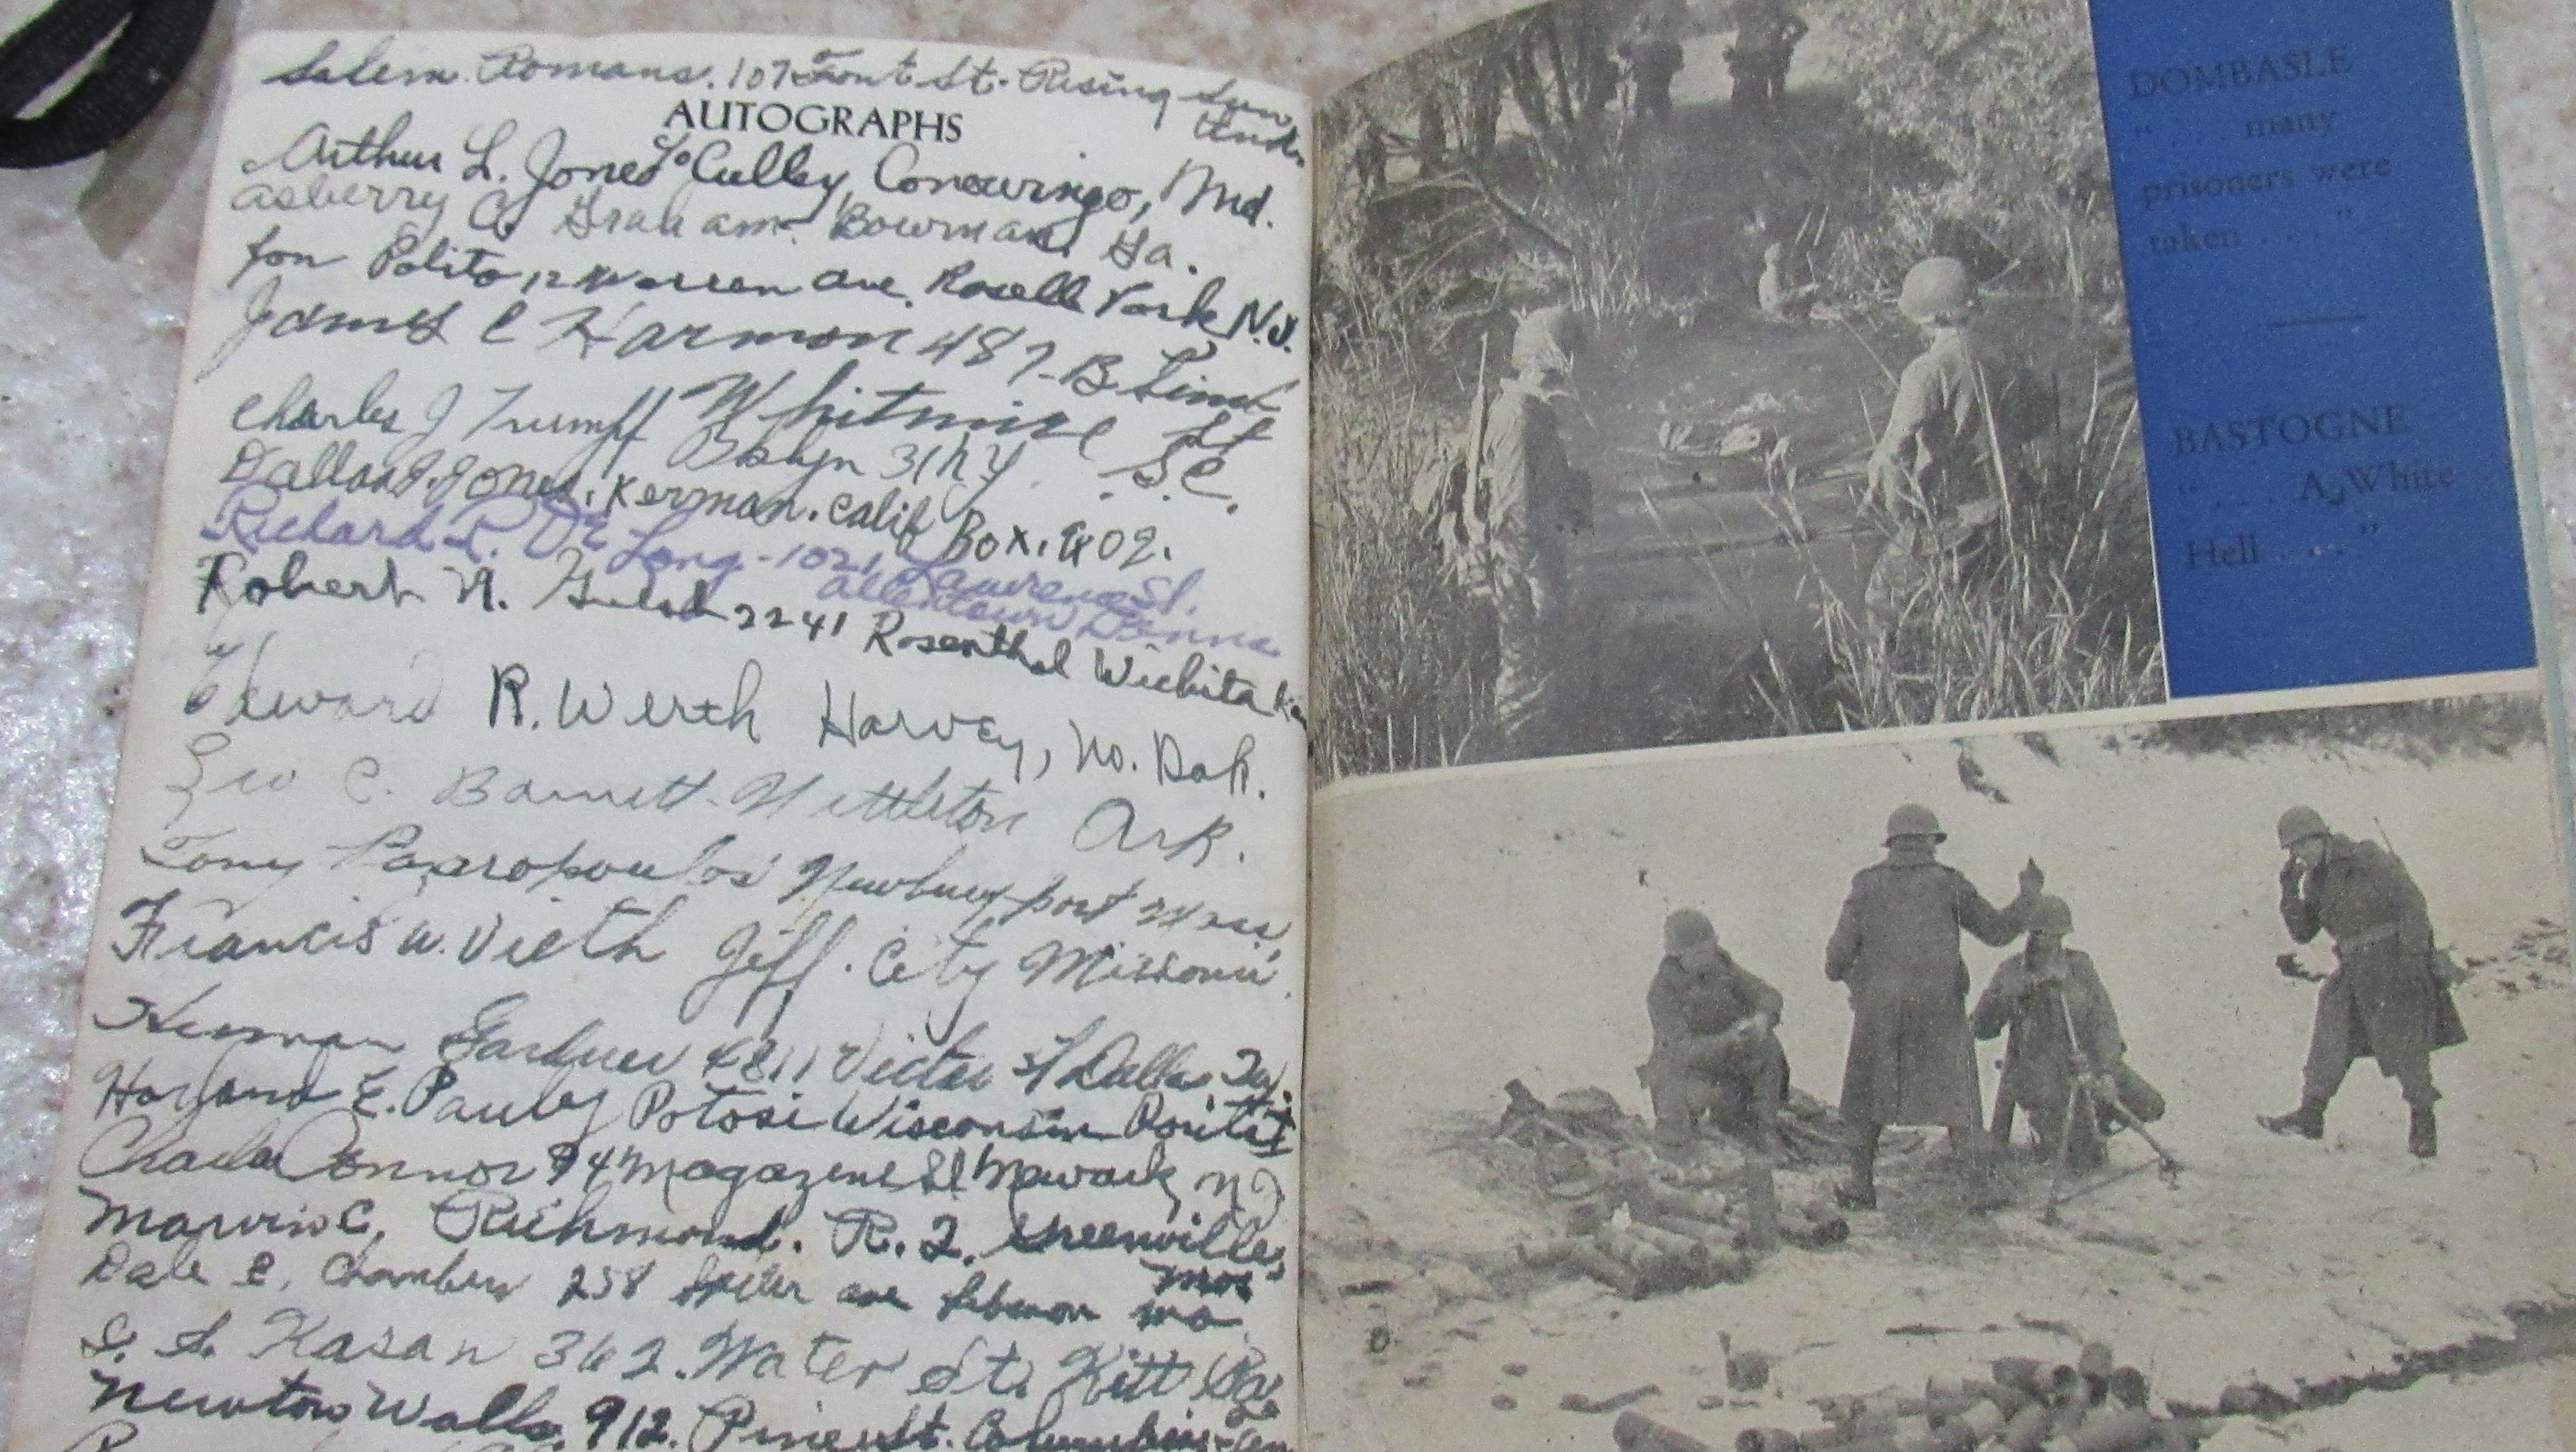 Salem Romans. 107 Front St. Rising Sun
Inda
AUTOGRAPHS
Arthur L. Jones % Culley, Conowingo, Md.
Asberry C. Graham. Bowman, Ga.
Jon Polito, 12 Warren ave. Roselle Park N.J.
James C Harmon 487-B Simt
Whitmire St
S.C.
Charles J Trumpf Bklyn 31 N Y.
Dallas J. Jones. Kerman. Calif Box. 402.
Richard L. De Long - 1021 Lawrence St.
Allentown Penna
Robert N. 2241 Rosenthal Wichita Kan
Edward R. Werth Harvey, No. Dak.
Geo C. Barnett Nettleton Ark.
Tony Papropoulos Newburyport Mass
Francis W. Vieth Jeff. City Missouri
Herman Gardner 4811 Victor St Dallas, Tex.
Harland E. Pauly Potosi Wisconsin Route 1
Charles Connor 94 Magazine St Newark, NJ
Marvin C, Richmond. R. 2. Greenville,
Mo.
Dale E. Chambers 258 ave Lebanon Mo
S. S. Kasan 362. Water St. Kitt Pa
Newton Walls. 912. Pine St. Columbia
DOMBASLE
". . . many
prisoners were
taken . . . ."
BASTOGNE
". . . . A White
Hell . . . ."